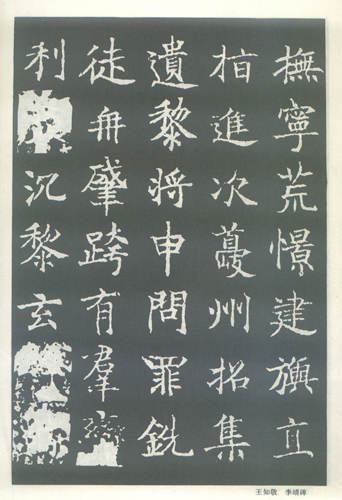 撫寧荒憬建旟直
指進次夔州招集
遺黎将申問罪銑
徒冉肇跨有羣
利沉黎玄
王知敬 李靖碑